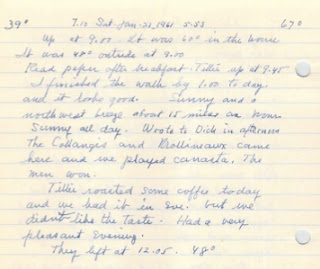 39° 7.10 Sat. Jan. 21, 1961 5.53 67°
Up at 9.00. It was 60° in the house
It was 48° outside at 9.00
Read paper after breakfast. Tillie up at 9.45
I finished the walk by 1.00 to day.
and it looks good. Sunny and a
northwest breeze about 15 miles an hour.
Sunny all day. Wrote to Dick in afternoon
The Collanges and Mollineaux came
here and we played canasta. The
men won.
Tillie roasted some coffee today
and we had it in eve. but we
didn't like the taste. Had a very
pleasant evening.
They left at 12.05. 48°